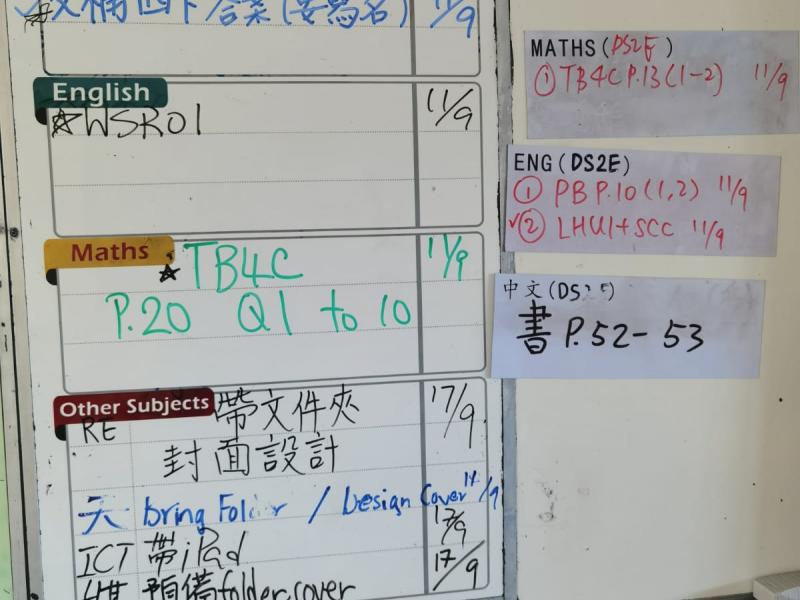 答案(要寫名) 11/9
English
☆WSR01 11/9
Maths
★TB4C 11/9
P.20 Q1 to 10
Other Subjects
RE 帶文件夾 17/9
封面設計
bring Folder / Design Cover 14/9
ICT 帶iPad 17/9
預備folder cover 17/9
MATHS(DS2E)
① TB4C P.13(1-2) 11/9
ENG(DS2E)
① PB P.10(1,2) 11/9
✓② LHU1+SCC 11/9
中文(DS2E)
書 P.52-53